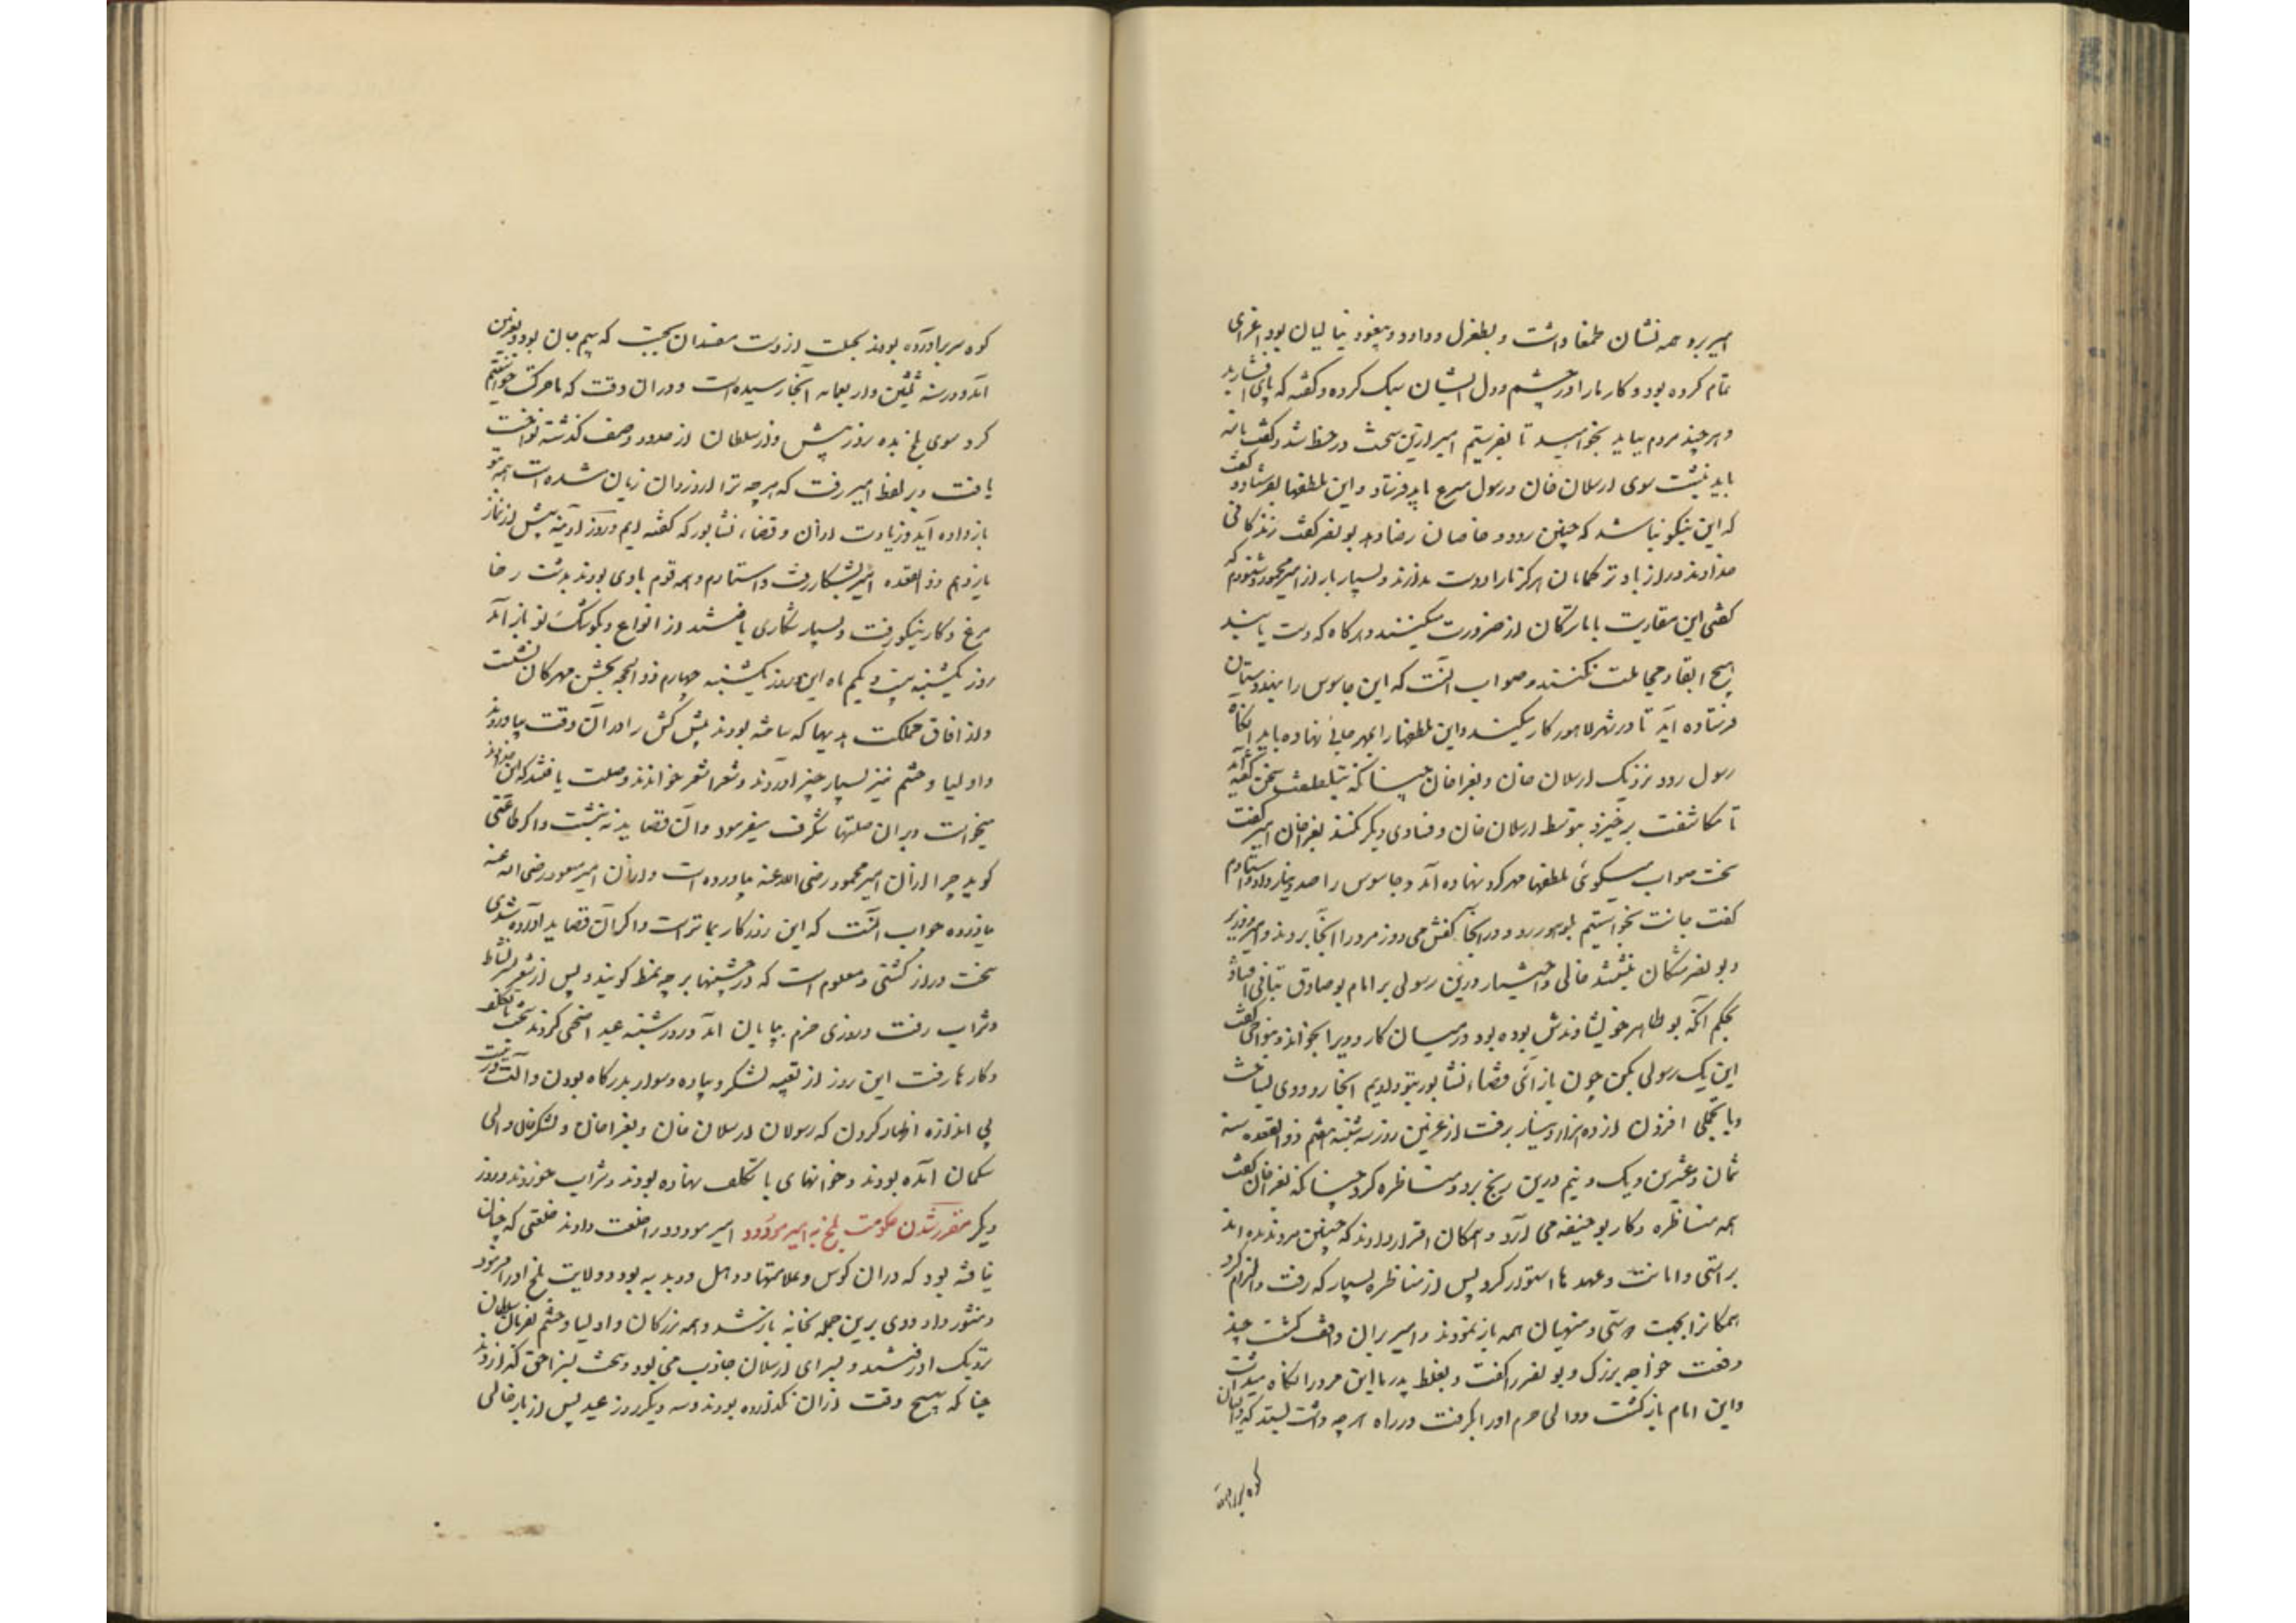 امیر برو همه نشان طمغا داشت و بطغرل و داود و بیغو و نیالیان بود اغرای
تمام کرده بود و کار ما را در چشم و دل ایشان سبک کرده و گفته که پای افشارید
و هر چند مردم بباید بخواهید تا بفرستیم امیر ازین سخت در خط شد و گفت نامه
باید نبشت سوی ارسلان خان و رسول مسرع باید فرستاد و این ملطفها بفرستاد و گفت
که این نیکو نباشد که چنین رود و خاصان رضا دهد بونصر گفت زندگانی
خداوند دراز باد ترکمانان هرگز ما را دوست ندارند و بسیار بار از امیر محمود شنودم که
گفتی این مقاربت با ما ترکان از ضرورت میکنند و هر گاه که دست یابند
هیچ ابقا و مجاملت نکنند و صواب آنست که این جاسوس را بهندوستان
فرستاده آید تا در شهر لاهور کار میکند و این ملطفها را بمهر جائی نهاده باید آنگاه
رسول رود نزدیک ارسلان خان و بغراخان چنانکه بتلطف سخن گفته آید
تا مکاشفت برخیزد بتوسط ارسلان خان و فسادی دیگر نکند بغراخان امیر گفت
سخت صواب میگوئی ملطفها مهر کرد نهاده آمد و جاسوس را صد دینار داد و استادم
گفت جانت بخواستیم بلوهور رود و در آنجا کفش می دوز مرد را آنجا بردند و امیر و وزیر
و بونصر مشکان بنشستند خالی و اختیار درین رسولی بر امام بوصادق تبانی افتاد
بحکم آنکه بوطاهر خویشاوندش بوده بود در میان کار و ویرا بخواند و بنواخت گفت
این یک رسولی بکن چون باز آئی قضاء نشابور بتو دادیم آنجا رو و وی بساخت
و با تجملی افزون از ده هزار دینار برفت از غزنین روز سه شنبه هفتم ذو القعده سنه
ثمان و عشرین و یک و نیم درین رنج برد و مناظره کرد چنانکه بغراخان گفت
همه مناظره و کار بوحنیفه می آرد و همگان اقرار دادند که چنین مرد ندیده اند
براستی و امانت و عهدها استوار کرد پس از مناظره بسیار که رفت و الزام کرد
همگانرا بحجت درستی و منهیان همه باز نمودند و امیر بران واقف گشت چند
دفعت خواجه بزرگ و بونصر را گفت و بغلط پدر ما این مرد را نگاه میداشت
و این امام باز گشت و والی جرم او را بگرفت در راه هر چه داشت بستد که در میان
کوه سر برآورده
کوه سر برآورده بودند بحیلت از دست مفسدان بجست که بیم جان بود و بغزنین
آمد در سنه ثلثین و اربعمایه آنجا رسیده است و در ان وقت که ما حرکت خواستیم
کرد سوی بلخ بده روز پیش و از سلطان از حدود وصف گذشته نواخت
یافت و بر لفظ امیر رفت که هر چه ترا از دزدان زیان شده است همه بتو
باز داده آید و زیادت از آن و قضاء نشابور که گفته ایم و روز آدینه پیش از نماز
یازدهم ذو القعده امیر بشکار رفت و استادم و همه قوم با وی بودند بدشت رخا
مرغ و کار نیکو رفت و بسیار شکاری یافتند از انواع و بکوشک نو باز آمد
روز یکشنبه بیست و یکم ماه این و روز یکشنبه چهارم ذو الحجه بجشن مهرگان نشست
و از آفاق مملکت هدیها که ساخته بودند پیش کش را در آن وقت بیاوردند
و اولیا و حشم نیز بسیار چیز آوردند و شعرا شعر خواندند و صلت یافتند که این خداوند
میخواست و بران صلتها شگرف میفرمود و آن قصاید نه نبشت و اگر طاعنی
گوید چرا از آن امیر محمود رضی الله عنه بیاورده است و از آن امیر مسعود رضی الله عنه
نیاورده جواب آنست که این روزگار بما نزدیکتر است و اگر آن قصاید آورده شدی
سخت دراز گشتی و معلوم است که در جشنها بر چه نمط گویند و پس از شعر بسر نشاط
و شراب رفت و روزی خرم بپایان آمد و روز شنبه عید اضحی کردند سخت با تکلف
و کارها رفت این روز از تعبیه لشکر و پیاده و سوار بدرگاه بودن و آلت و زینت
بی اندازه اظهار کردن که رسولان ارسلان خان و بغراخان و لشکرخان والی
سکمان آمده بودند و خوانهای با تکلف نهاده بودند و شراب خوردند و روز
دیگر مقرر شدن حکومت بلخ به امیر مودود امیر مودود را خلعت دادند خلعتی که چنان
نیافته بود که در ان کوس و علامتها و دهل و دبدبه بود و ولایت بلخ او را فرمود
و منشور داد و وی برین جمله بخانه باز شد و همه بزرگان و اولیا و حشم بفرمان سلطان
نزدیک او رفتند و بسرای ارسلان جاذب می بود و سخت بسزا حق گذاردند
چنانکه هیچ وقت از ان نگذارده بودند و سه دیگر روز عید پس از بار خالی